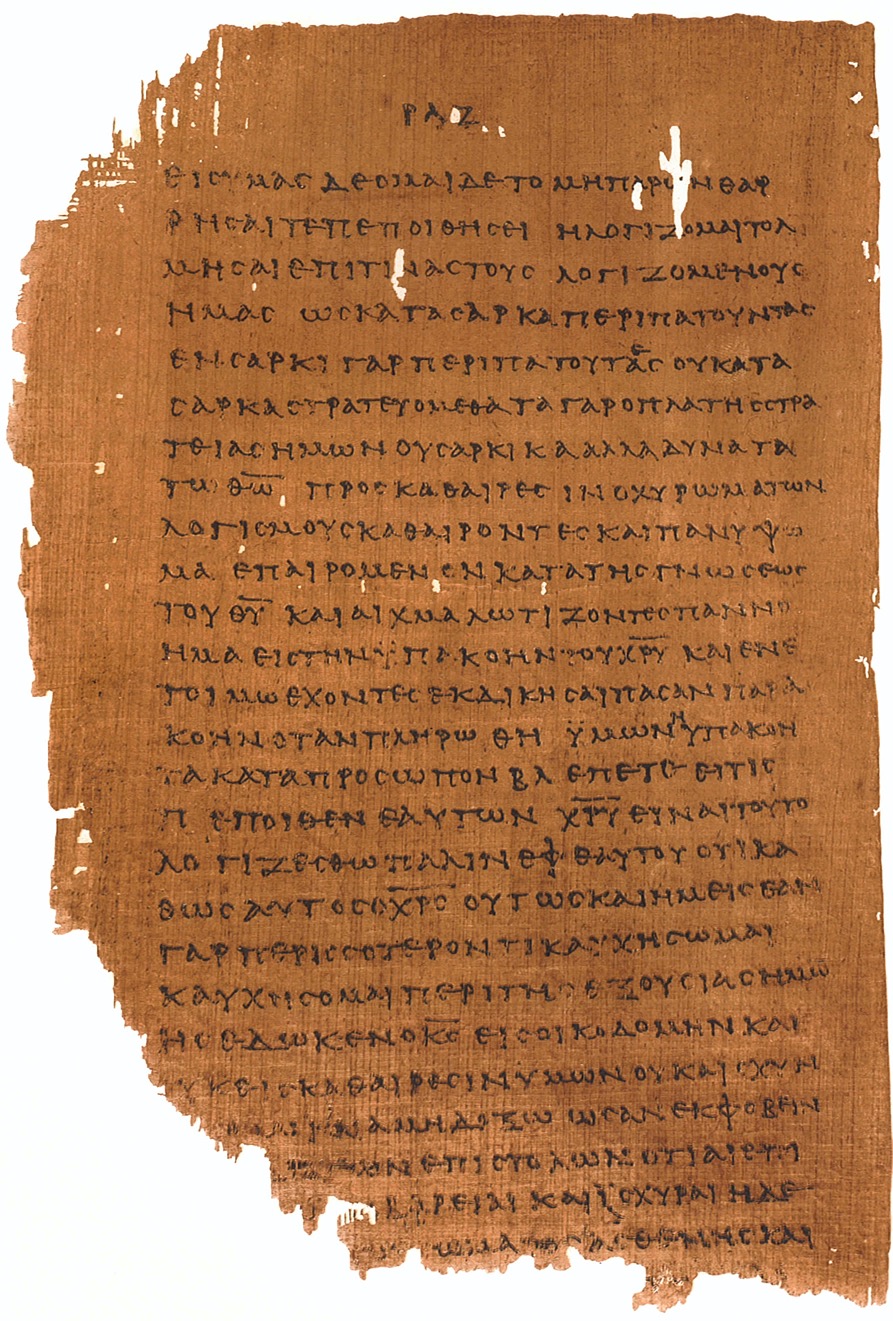 ΡΛΖ
ΕΙΣ ΥΜΑΣ ΔΕΟΜΑΙ ΔΕ ΤΟ ΜΗ ΠΑΡΩΝ ΘΑΡ
ΡΗΣΑΙ ΤΕ ΠΕΠΟΙΘΗΣΕΙ Η ΛΟΓΙΖΟΜΑΙ ΤΟΛ
ΜΗΣΑΙ ΕΠΙ ΤΙΝΑΣ ΤΟΥΣ ΛΟΓΙΖΟΜΕΝΟΥΣ
ΗΜΑΣ ΩΣ ΚΑΤΑ ΣΑΡΚΑ ΠΕΡΙΠΑΤΟΥΝΤΑΣ
ΕΝ ΣΑΡΚΙ ΓΑΡ ΠΕΡΙΠΑΤΟΥΤΑΕΣ ΟΥ ΚΑΤΑ
ΣΑΡΚΑ ΣΤΡΑΤΕΥΟΜΕΘΑ ΤΑ ΓΑΡ ΟΠΛΑ ΤΗΣ ΣΤΡΑ
ΤΕΙΑΣ ΗΜΩΝ ΟΥ ΣΑΡΚΙΚΑ ΑΛΛΑ ΔΥΝΑΤΑ
ΤΩ ΘΩ ΠΡΟΣ ΚΑΘΑΙΡΕΣΙΝ ΟΧΥΡΩΜΑΤΩΝ
ΛΟΓΙΣΜΟΥΣ ΚΑΘΑΙΡΟΝΤΕΣ ΚΑΙ ΠΑΝ ΥΨΩ
ΜΑ ΕΠΑΙΡΟΜΕΝΟΝ ΚΑΤΑ ΤΗΣ ΓΝΩΣΕΩΣ
ΤΟΥ ΘΥ ΚΑΙ ΑΙΧΜΑΛΩΤΙΖΟΝΤΕΣ ΠΑΝ ΝΟ
ΗΜΑ ΕΙΣ ΤΗΝ ΫΠΑΚΟΗΝ ΤΟΥ ΧΡΥ ΚΑΙ ΕΝ Ε
ΤΟΙΜΩ ΕΧΟΝΤΕΣ ΕΚΔΙΚΗΣΑΙ ΠΑΣΑΝ ΠΑΡΑ
ΚΟΗΝ ΟΤΑΝ ΠΛΗΡΩΘΗ ΫΜΩΝ Η ΥΠΑΚΟΗ
ΤΑ ΚΑΤΑ ΠΡΟΣΩΠΟΝ ΒΛΕΠΕΤΕ ΕΙ ΤΙΣ
ΠΕΠΟΙΘΕΝ ΕΑΥΤΩΝ ΧΡΥ ΕΙΝΑΙ ΤΟΥΤΟ
ΛΟΓΙΖΕΣΘΩ ΠΑΛΙΝ ΕΦ ΕΑΥΤΟΥ ΟΤΙ ΚΑ
ΘΩΣ ΑΥΤΟΣ Ο ΧΡΣ ΟΥΤΩΣ ΚΑΙ ΗΜΕΙΣ ΕΑΝ
ΓΑΡ ΠΕΡΙΣΣΟΤΕΡΟΝ ΤΙ ΚΑΥΧΗΣΩΜΑΙ
ΚΑΥΧΗΣΟΜΑΙ ΠΕΡΙ ΤΗΣ ΕΞΟΥΣΙΑΣ ΗΜΩ
ΗΣ ΕΔΩΚΕΝ Ο ΚΣ ΕΙΣ ΟΙΚΟΔΟΜΗΝ ΚΑΙ
ΟΥΚ ΕΙΣ ΚΑΘΑΙΡΕΣΙΝ ΥΜΩΝ ΟΥΚ ΑΙΣΧΥΝ
ΙΝΑ ΜΗ ΔΟΞΩ ΩΣ ΑΝ ΕΚΦΟΒΕΙΝ
ΤΩΝ ΕΠΙΣΤΟΛΩΝ ΟΤΙ ΑΙ ΕΠΙ
ΒΑΡΕΙΑΙ ΚΑΙ ΪΣΧΥΡΑΙ Η ΔΕ
ΣΩΜΑΤΟΣ ΑΣΘΕΝΗΣ ΚΑΙ